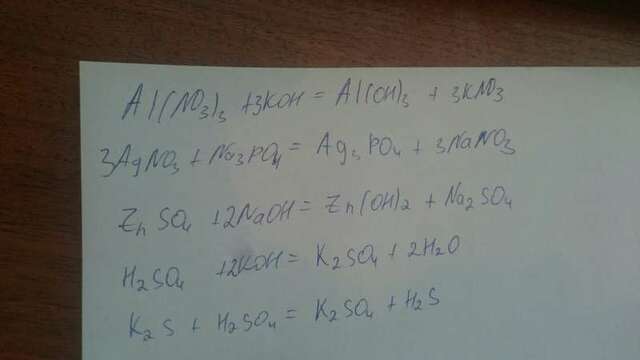 Al(NO3)3 +3KOH = Al(OH)3 + 3KNO3
3AgNO3 + Na3PO4 = Ag3PO4 + 3NaNO3
ZnSO4 +2NaOH = Zn(OH)2 + Na2SO4
H2SO4 +2KOH = K2SO4 + 2H2O
K2S + H2SO4 = K2SO4 + H2S